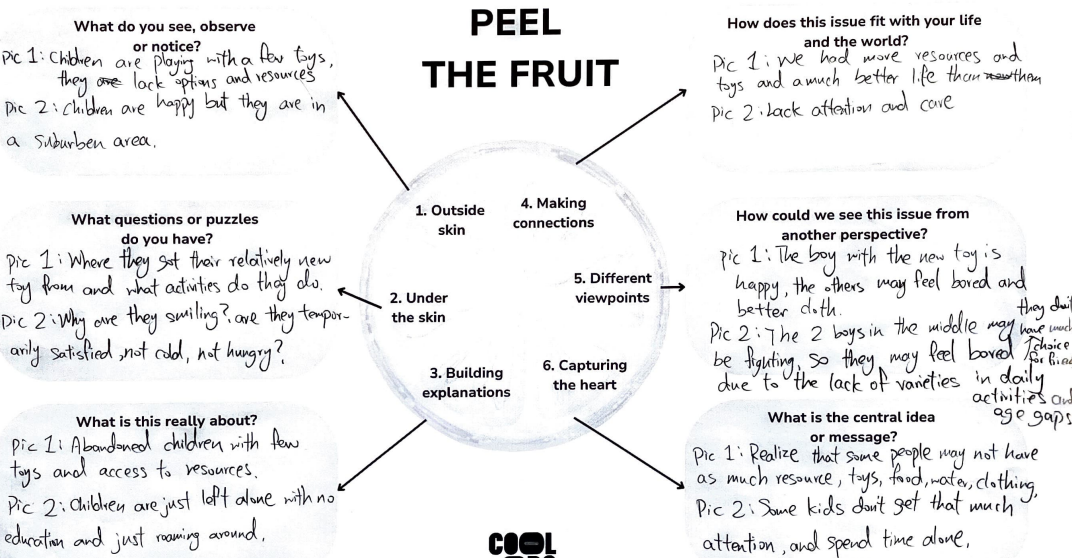 PEEL
THE FRUIT
What do you see, observe
or notice?
Pic 1: Children are playing with a few toys,
they are lack options and resources
Pic 2: Children are happy but they are in
a suburben area.
What questions or puzzles
do you have?
Pic 1: Where they got their relatively new
toy from and what activities do they do.
Pic 2: Why are they smiling?, are they tempor-
arily satisfied, not cold, not hungry?
What is this really about?
Pic 1: Abandoned children with few
toys and access to resources.
Pic 2: Children are just left alone with no
education and just roaming around.
1. Outside
skin
2. Under
the skin
3. Building
explanations
4. Making
connections
5. Different
viewpoints
6. Capturing
the heart
How does this issue fit with your life
and the world?
Pic 1: We had more resources and
toys and a much better life than them
Pic 2: Lack attention and care
How could we see this issue from
another perspective?
Pic 1: The boy with the new toy is
happy, the others may feel bored and
better cloth.
Pic 2: The 2 boys in the middle may
be fighting, so they may feel bored
due to the lack of varieties in daily
activities and
age gaps
they don't
have much
choice
for
What is the central idea
or message?
Pic 1: Realize that some people may not have
as much resource, toys, food, water, clothing.
Pic 2: Some kids don't get that much
attention, and spend time alone.
COOL